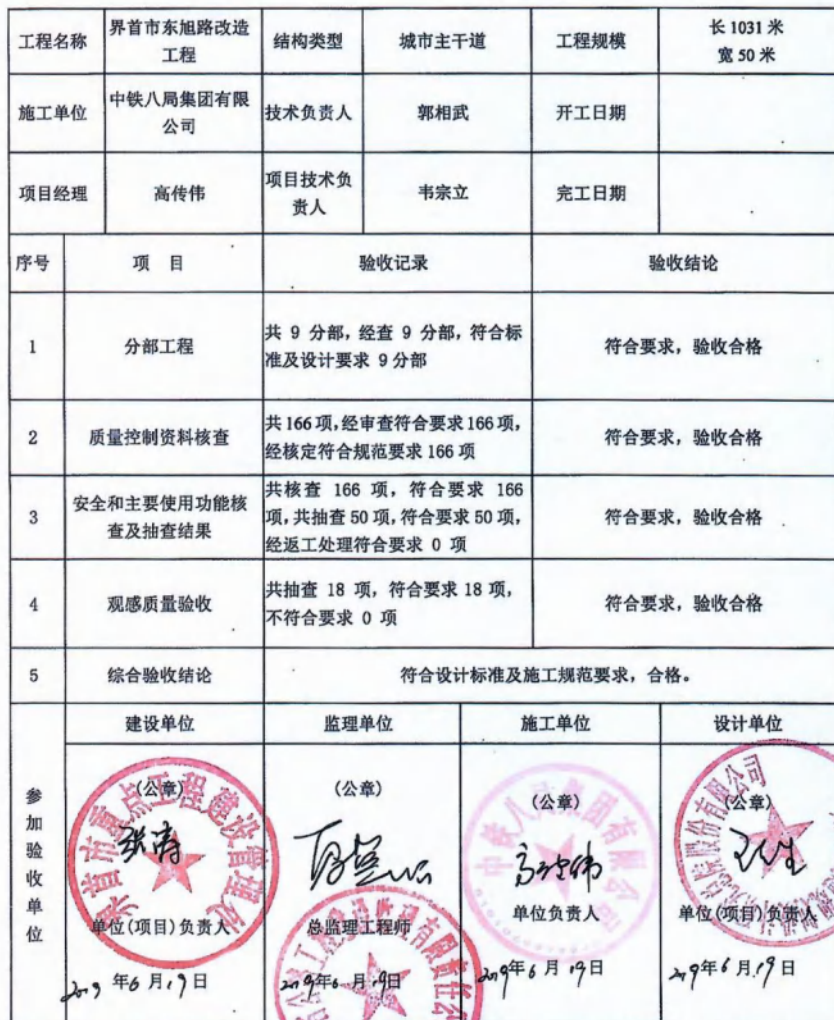 工程名称
界首市东旭路改造
工程
结构类型
城市主干道
工程规模
长 1031 米
宽 50 米
施工单位
中铁八局集团有限
公司
技术负责人
郭相武
开工日期
项目经理
高传伟
项目技术负
责人
韦宗立
完工日期
序号
项 目
验收记录
验收结论
1
分部工程
共 9 分部，经查 9 分部，符合标
准及设计要求 9 分部
符合要求，验收合格
2
质量控制资料核查
共 166 项，经审查符合要求 166 项，
经核定符合规范要求 166 项
符合要求，验收合格
3
安全和主要使用功能核
查及抽查结果
共核查 166 项，符合要求 166
项，共抽查 50 项，符合要求 50 项，
经返工处理符合要求 0 项
符合要求，验收合格
4
观感质量验收
共抽查 18 项，符合要求 18 项，
不符合要求 0 项
符合要求，验收合格
5
综合验收结论
符合设计标准及施工规范要求，合格。
参加验收单位
建设单位
监理单位
施工单位
设计单位
(公章)
(公章)
(公章)
(公章)
界首市重点工程建设管理处
中铁八局集团有限公司
股份有限公司
张涛
高传伟
单位(项目)负责人
总监理工程师
单位负责人
单位(项目)负责人
2019 年 6 月 19 日
2019 年 6 月 19 日
2019 年 6 月 19 日
2019 年 6 月 19 日